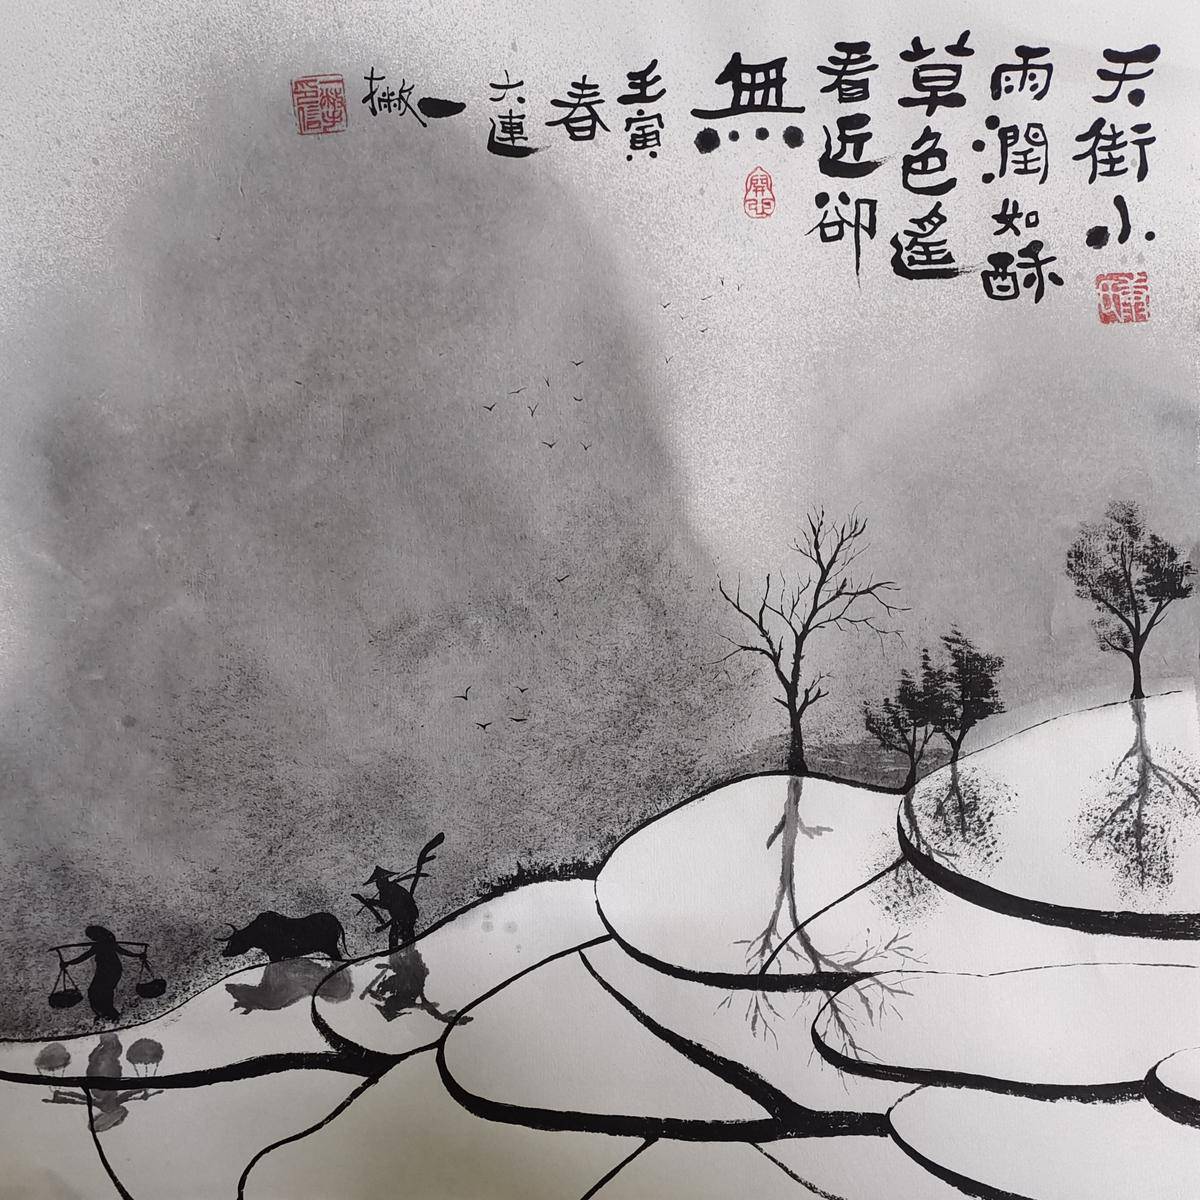 天街小
雨潤如酥
草色遙
看近卻
無
壬寅
春
六連
一撇